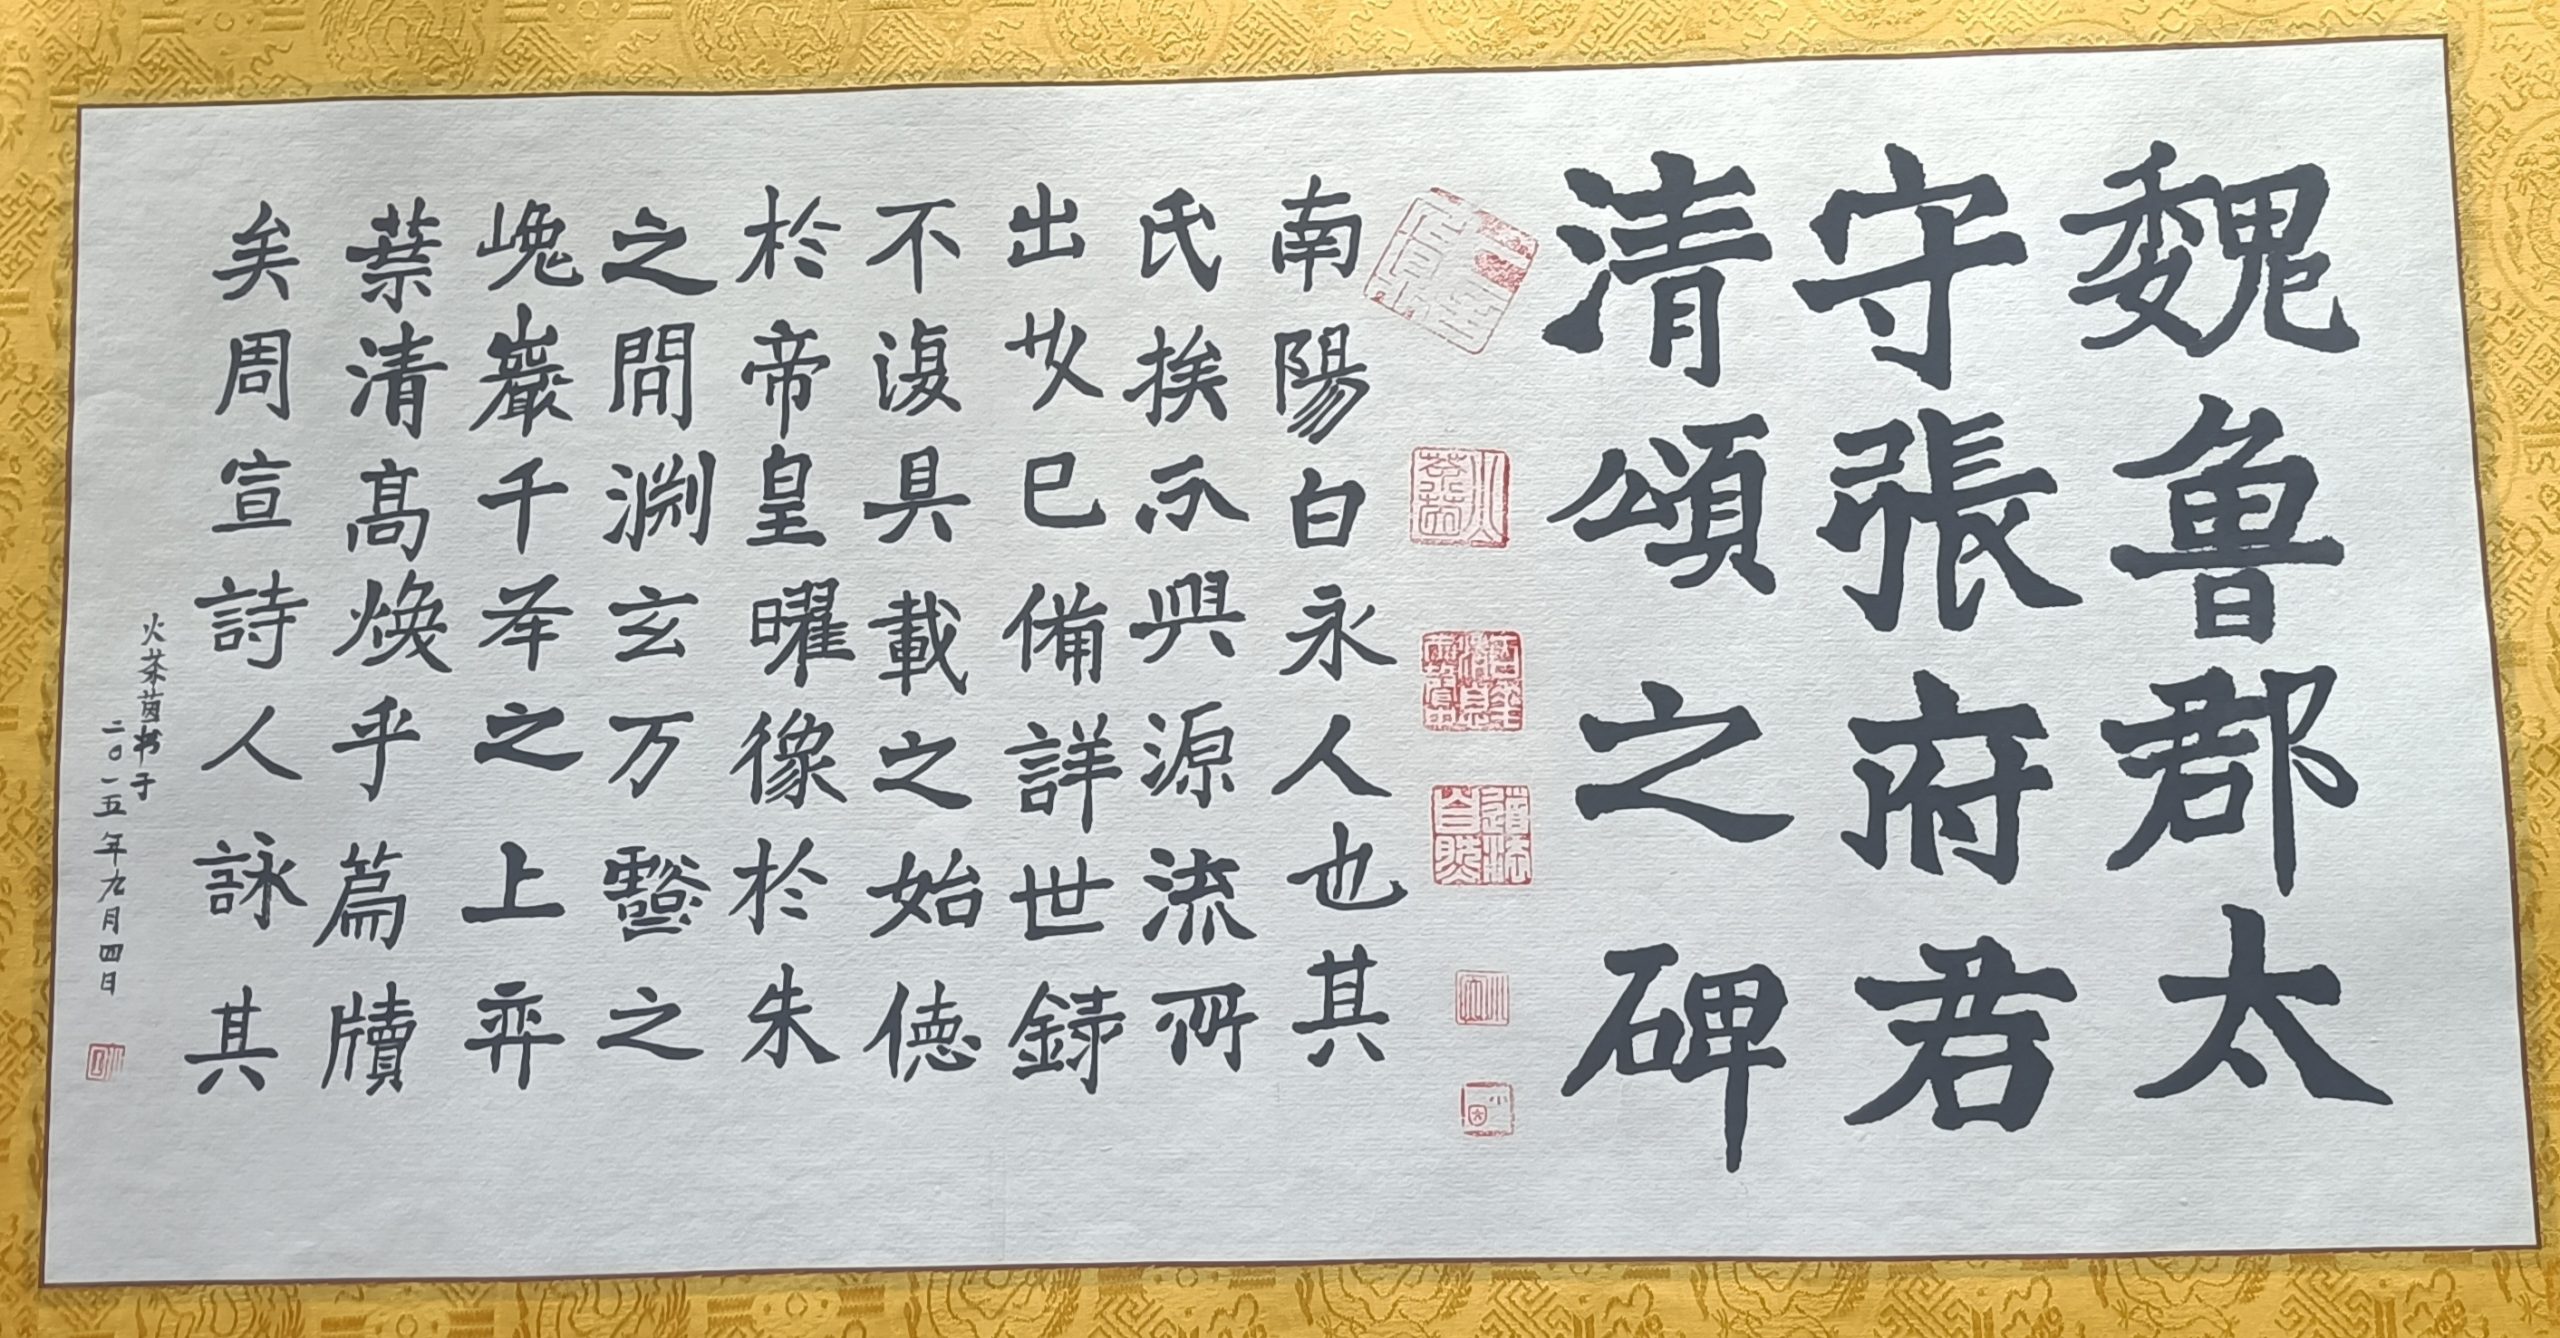 魏魯郡太
守張府君
清頌之碑
南陽白永人也其
氏族分興源流所
出故已備詳世錄
不復具載之始德
於帝皇曜像於朱
之間淵玄万壑之
嵬巖千峯之上弈
葉清高煥乎篇牘
矣周宣詩人詠其
火茶茵書于
二〇一五年九月四日
道法自然